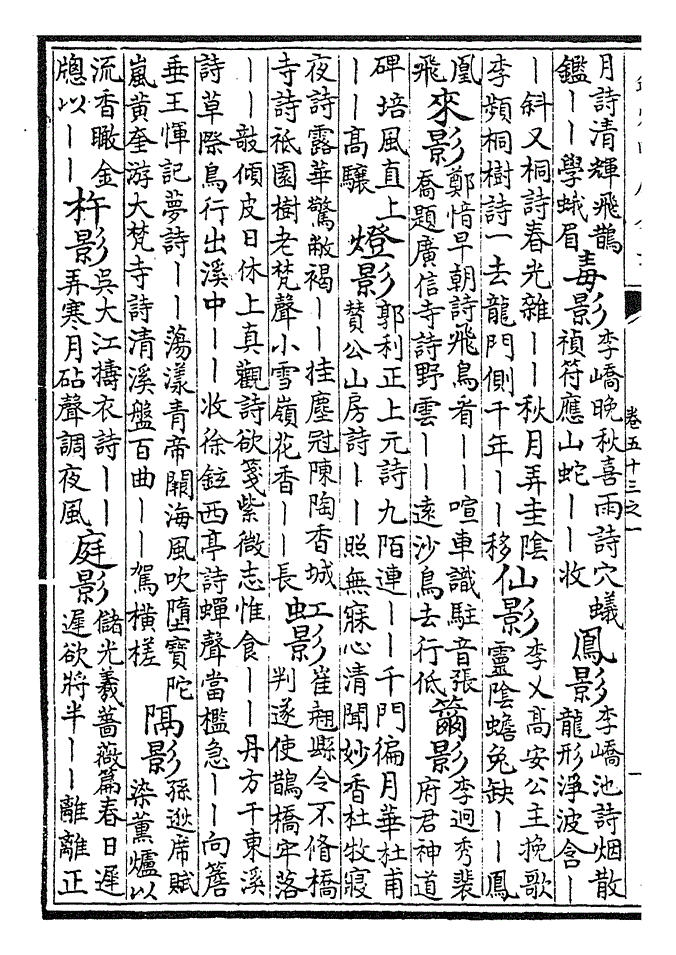 月詩清輝飛鵲
鑑——學蛾眉
毒影
李嶠晚秋喜雨詩穴蟻
禎符應山蛇——收
鳳影
李嶠池詩烟散
龍形淨波含—
—斜又桐詩春光雜——秋月弄圭陰
李頻桐樹詩一去龍門側千年——移
仙影
李乂高安公主挽歌
靈陰蟾兔缺——鳳
凰
飛
來影
鄭愔早朝詩飛鳥看——喧車識駐音張
喬題廣信寺詩野雲——遠沙鳥去行低
籋影
李迥秀裴
府君神道
碑培風直上
——高驤
燈影
郭利正上元詩九陌連——千門徧月華杜甫
贊公山房詩——照無寐心清聞妙香杜牧寢
夜詩露華驚敝褐——挂塵冠陳陶香城
寺詩祇園樹老梵聲小雪嶺花香——長
虹影
崔翹縣令不脩橋
判遂使鵲橋牢落
——敧傾皮日休上真觀詩欲箋紫微志惟食——丹方干東溪
詩草際鳥行出溪中——收徐鉉西亭詩蟬聲當檻急——向簷
垂王惲記夢詩——蕩漾青帝闢海風吹墮寶陀
嵐黃奎游大梵寺詩清溪盤百曲——駕橫槎
隔影
孫逖席賦
染薰爐以
流香瞰金
牕以——
杵影
吳大江擣衣詩——
弄寒月砧聲調夜風
庭影
儲光羲薔薇篇春日遲
遲欲將半——離離正
卷五十三之一
一